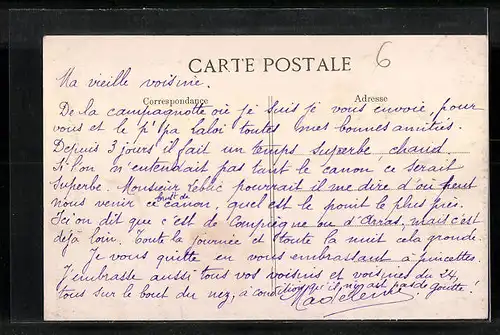 6
CARTE POSTALE
Ma vieille voisine.
Correspondance Adresse
De la campagnotte où je suis je vous envoie, pour
vous et le p'pa Laloi toutes mes bonnes amitiés.
Depuis 3 jours il fait un temps superbe, chaud.
Si l'on n'entendait pas tant le canon ce serait
superbe. Monsieur Leblic pourrait il me dire d'où peut
nous venir ce bruit de canon, quel est le point le plus près.
Ici on dit que c'est de Compiègne ou d'Arras, mais c'est
déjà loin. Toute la journée et toute la nuit cela gronde.
Je vous quitte en vous embrassant à pincettes.
J'embrasse aussi tous vos voisins et voisines du 24,
tous sur le bout du nez, à condition qu'il n'y ait pas de goutte!
Madeleine